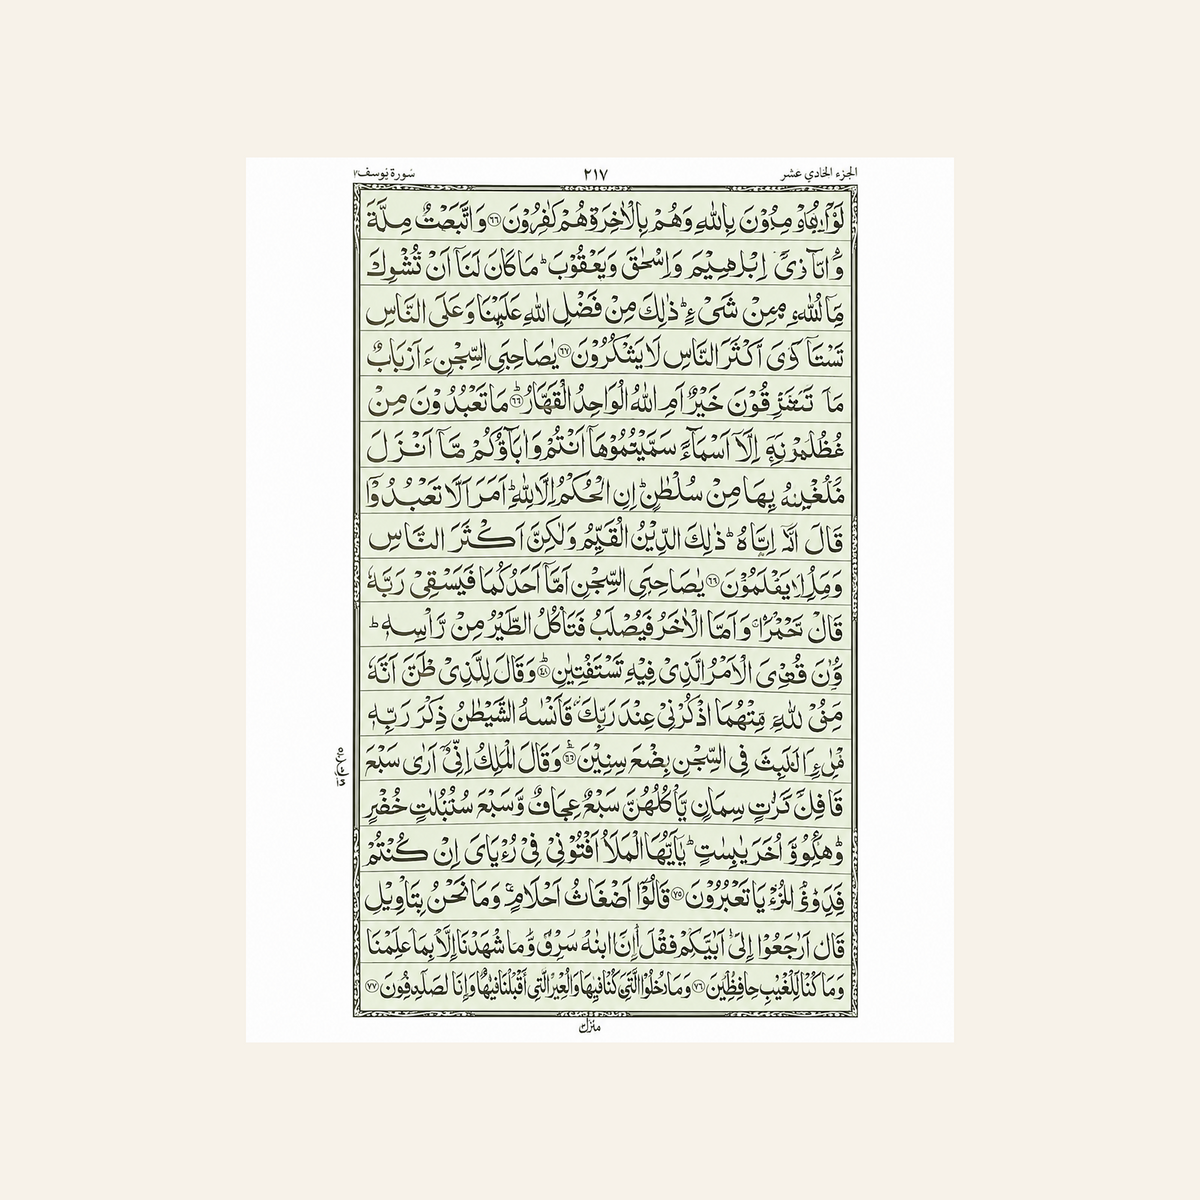 الجزء الحادي عشر
٢١٧
سورة يوسف
بِاللّٰهِ وَهُمْ بِالْاٰخِرَةِ هُمْ كٰفِرُوْنَ ۝٦٦ وَاتَّبَعْتُ مِلَّةَ
اِبْرٰهِيْمَ وَاِسْحٰقَ وَيَعْقُوْبَ ؕ مَا كَانَ لَنَاۤ اَنْ نُّشْرِكَ
مِنْ شَىْءٍ ؕ ذٰلِكَ مِنْ فَضْلِ اللّٰهِ عَلَيْنَا وَعَلَى النَّاسِ
اَكْثَرَ النَّاسِ لَا يَشْكُرُوْنَ ۝٦٧ يٰصَاحِبَىِ السِّجْنِ ءَاَرْبَابٌ
خَيْرٌ اَمِ اللّٰهُ الْوَاحِدُ الْقَهَّارُ ؕ۝٦٦ مَا تَعْبُدُوْنَ مِنْ
اِلَّاۤ اَسْمَآءً سَمَّيْتُمُوْهَاۤ اَنْتُمْ وَاٰبَآؤُكُمْ مَّاۤ اَنْزَلَ
بِهَا مِنْ سُلْطٰنٍ ؕ اِنِ الْحُكْمُ اِلَّا لِلّٰهِ ؕ اَمَرَ اَلَّا تَعْبُدُوْۤا
قَالَ اِيَّاهُ ؕ ذٰلِكَ الدِّيْنُ الْقَيِّمُ وَلٰكِنَّ اَكْثَرَ النَّاسِ
يٰصَاحِبَىِ السِّجْنِ اَمَّاۤ اَحَدُكُمَا فَيَسْقِىْ رَبَّهٗ
خَمْرًا ۚ وَاَمَّا الْاٰخَرُ فَيُصْلَبُ فَتَاْكُلُ الطَّيْرُ مِنْ رَّاْسِهٖ ؕ
الْاَمْرُ الَّذِىْ فِيْهِ تَسْتَفْتِيٰنِ ؕ۝٤٨ وَقَالَ لِلَّذِىْ ظَنَّ اَنَّهٗ
مِّنْهُمَا اذْكُرْنِىْ عِنْدَ رَبِّكَ فَاَنْسٰىهُ الشَّيْطٰنُ ذِكْرَ رَبِّهٖ
فِى السِّجْنِ بِضْعَ سِنِيْنَ ؕ۝٦٦ وَقَالَ الْمَلِكُ اِنِّىْۤ اَرٰى سَبْعَ
سِمَانٍ يَّاْكُلُهُنَّ سَبْعٌ عِجَافٌ وَّسَبْعَ سُنْۢبُلٰتٍ خُضْرٍ
اُخَرَ يٰبِسٰتٍ ؕ يٰۤاَيُّهَا الْمَلَاُ اَفْتُوْنِىْ فِىْ رُءْيَاىَ اِنْ كُنْتُمْ
تَعْبُرُوْنَ ۝٧٥ قَالُوْۤا اَضْغَاثُ اَحْلَامٍ ۚ وَمَا نَحْنُ بِتَاْوِيْلِ
قَالَ ارْجِعُوْا اِلٰىۤ اَبِيْكُمْ فَقُلْ اِنَّ ابْنَهُ سَرَقَ وَمَا شَهِدْنَا اِلَّا بِمَا عَلِمْنَا
وَمَا كُنَّا لِلْغَيْبِ حَافِظِيْنَ ۝٧٦ الَّتِىْ كُنَّا فِيْهَا وَالْعِيْرَ الَّتِىْ اَقْبَلْنَا فِيْهَا وَاِنَّا ۝٧٧
منزل